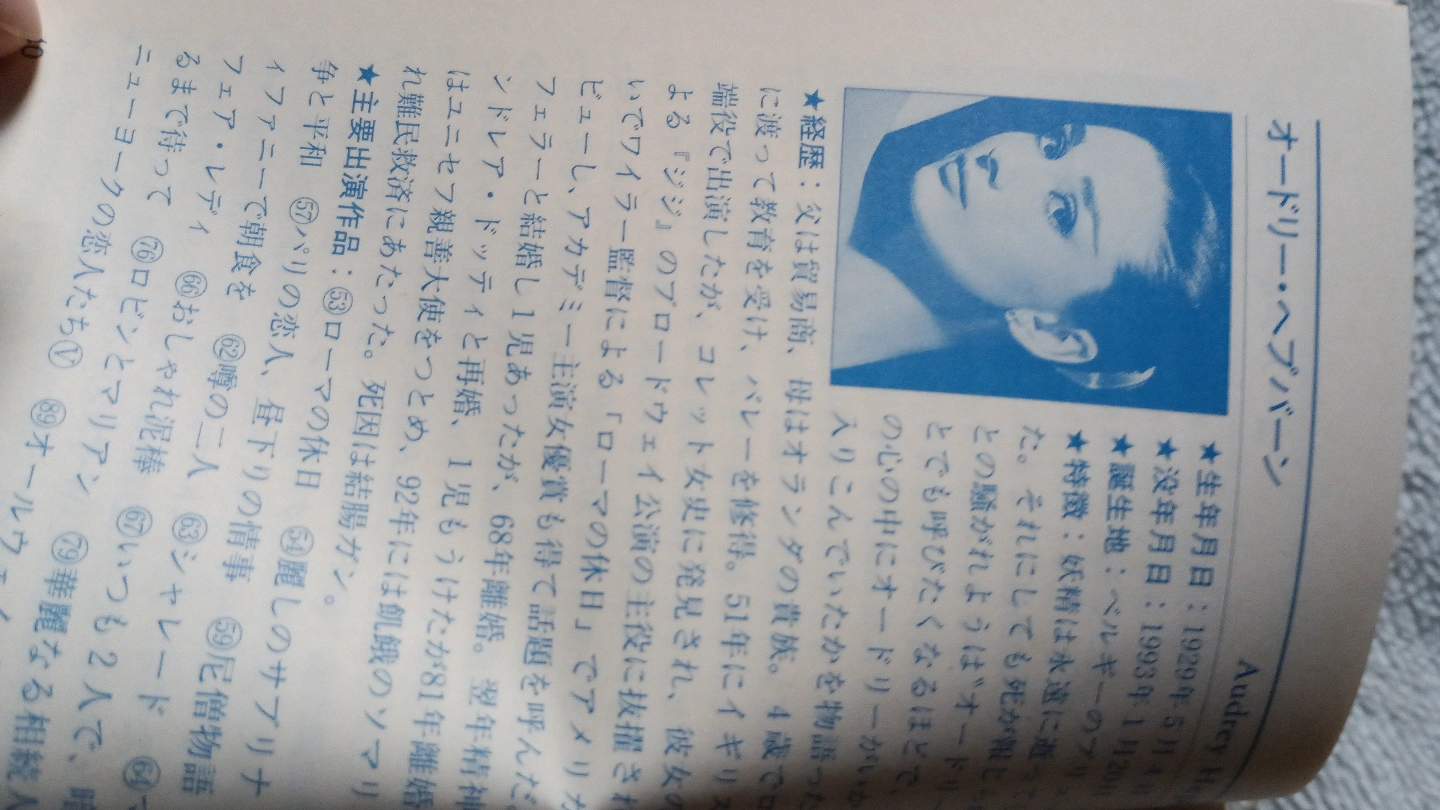 オードリー・ヘプバーン Audrey
★生年月日：1929年5月4日
★没年月日：1993年1月20日
★誕生地：ベルギーのブリュ
★特徴：妖精は永遠に逝って
た。それにしても死が報じ
との騒がれようは"オードリー
とでも呼びたくなるほどで、
の心の中にオードリーがいか
入りこんでいたかを物語った
★経歴：父は貿易商、母はオランダの貴族。4歳でロ
に渡って教育を受け、バレーを修得。51年にイギリス
端役で出演したが、コレット女史に発見され、彼女の
よる『ジジ』のブロードウェイ公演の主役に抜擢され
いでワイラー監督による「ローマの休日」でアメリカ
ビューし、アカデミー主演女優賞も得て話題を呼んだ。
フェラーと結婚し1児あったが、68年離婚。翌年精神
ンドレア・ドッティと再婚、1児もうけたが81年離婚
はユニセフ親善大使をつとめ、92年には飢餓のソマリ
れ難民救済にあたった。死因は結腸ガン。
★主要出演作品：㊾ローマの休日 ㊿麗しのサブリナ
争と平和 57パリの恋人、昼下りの情事 59尼僧物語
ィファニーで朝食を 62噂の二人 63シャレード 64マ
フェア・レディ 66おしゃれ泥棒 67いつも2人で、暗
るまで待って 76ロビンとマリアン 79華麗なる相続人
ニューヨークの恋人たちⓋ 89オールウェイ